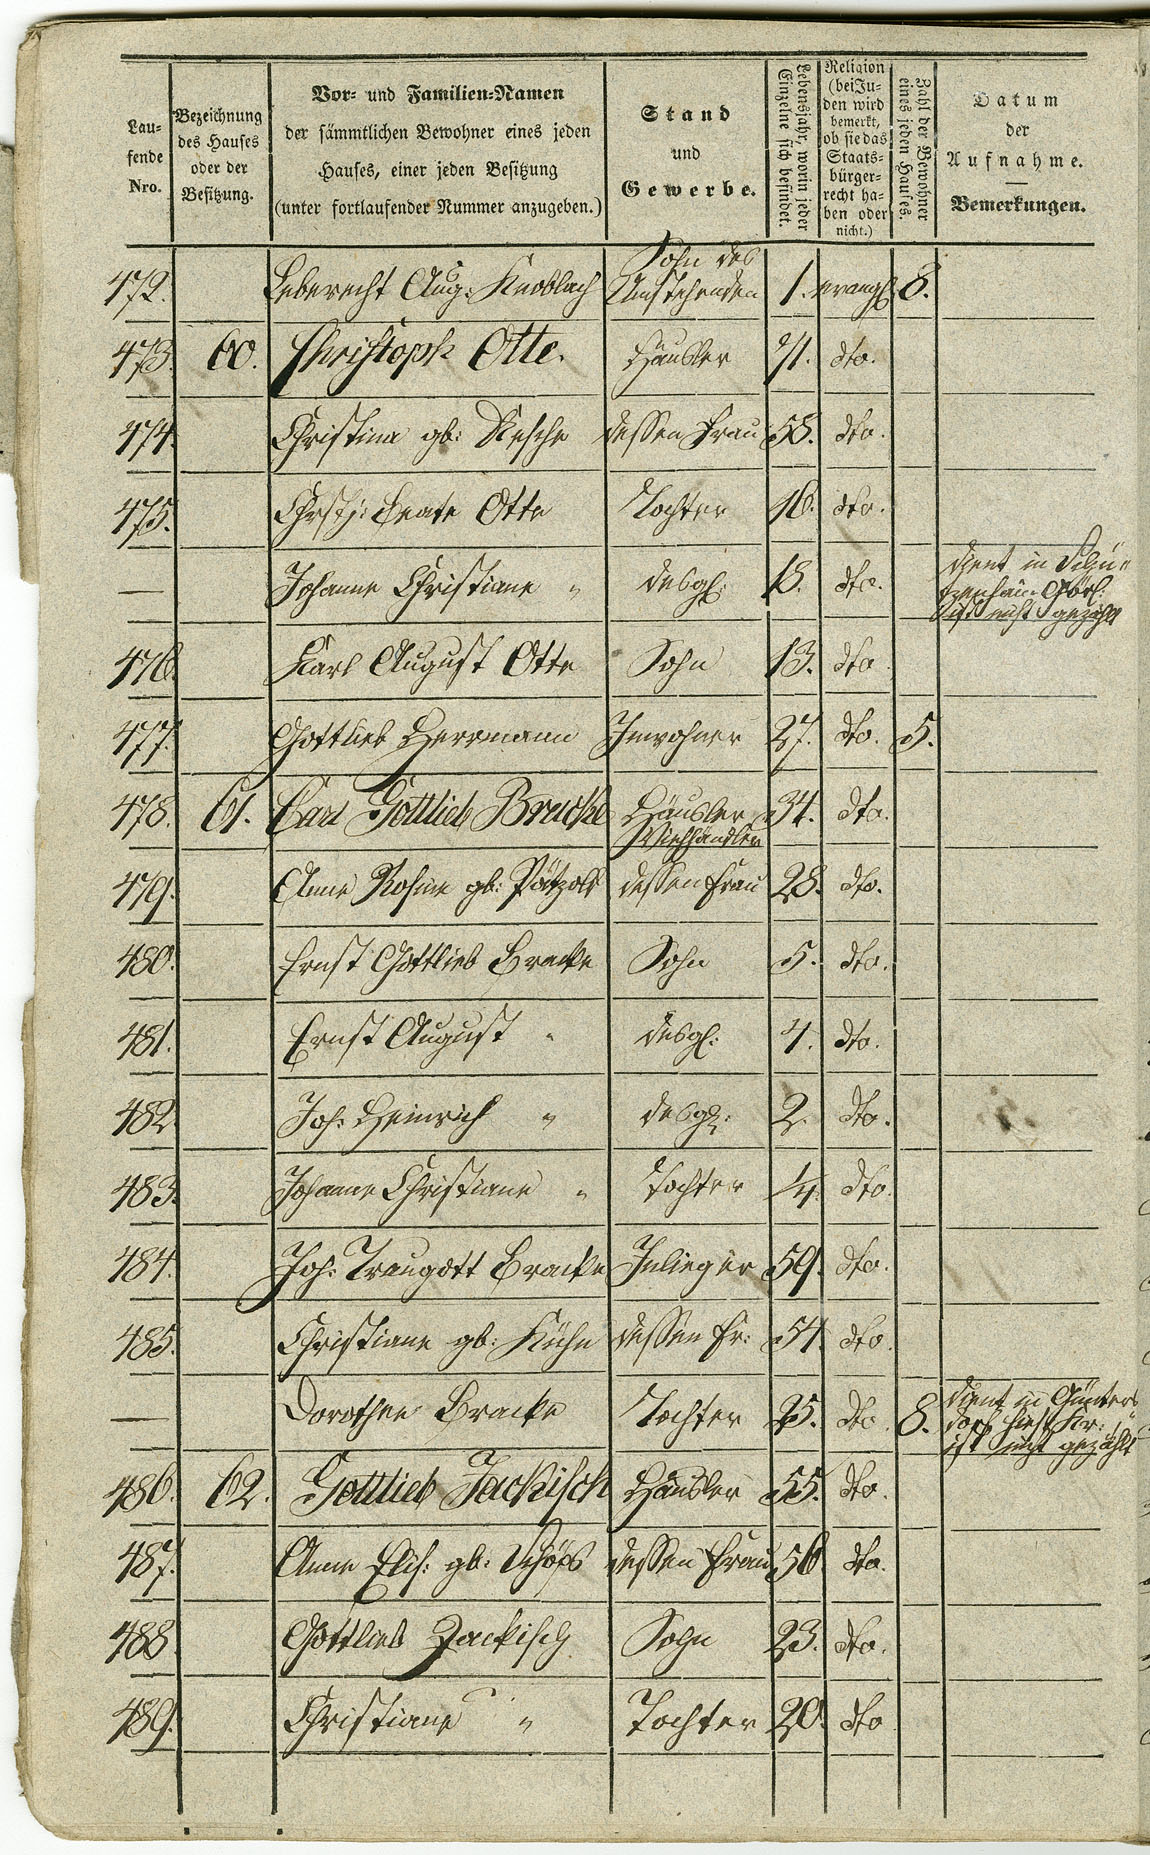 Lau-
fende
Nro.
Bezeichnung
des Hauses
oder der
Besitzung.
Vor- und Familien-Namen
der sämmtlichen Bewohner eines jeden
Hauses, einer jeden Besitzung
(unter fortlaufender Nummer anzugeben.)
Stand
und
Gewerbe.
Lebensjahr, worin jeder
Einzelne sich befindet.
Religion
(bei Ju-
den wird
bemerkt,
ob sie das
Staats-
bürger-
recht ha-
ben oder
nicht.)
Zahl der Bewohner
eines jeden Hauses.
Datum
der
Aufnahme.
Bemerkungen.
Sohn des
472. Leberecht Aug: Knoblach Umstehenden 1. evangl 8.
473. 60. Christoph Otte. Häusler 71. dto.
474. Christina gb: Resche dessen Frau 58. dto.
475. Christ: Beate Otte Tochter 16. dto.
— Johanne Christiane " desgl: 18. dto. dient in
ist nicht gezählt
476. Karl August Otte Sohn 13. dto
477. Gottlieb Herrmann Inwohner 27. dto. 5.
478. 61. Carl Gottlieb Bracke Häusler 34. dto.
Viehhändler
479. Anne Rosine gb: Pätzold dessen Frau 28. dto.
480. Ernst Gottlieb Bracke Sohn 5. dto.
481. Ernst August " desgl: 4. dto.
482 Joh: Heinrich " desgl: 2. dto.
483. Johanne Christiane " Tochter dto.
484. Joh: Traugott Bracke Inlieger 59. dto.
485. Christiane gb: Kühn dessen Fr: 54. dto
— Dorothee Bracke Tochter 25. dto. 8. dient in Günters
dorf
ist nicht gezählt
486. 62. Gottlieb Jackisch Häusler 55. dto.
487. Anne Elis: gb: Schöps dessen Frau 56 dto.
488 Gottlieb Jackisch Sohn 23. dto.
489. Christiane " Tochter 20. dto